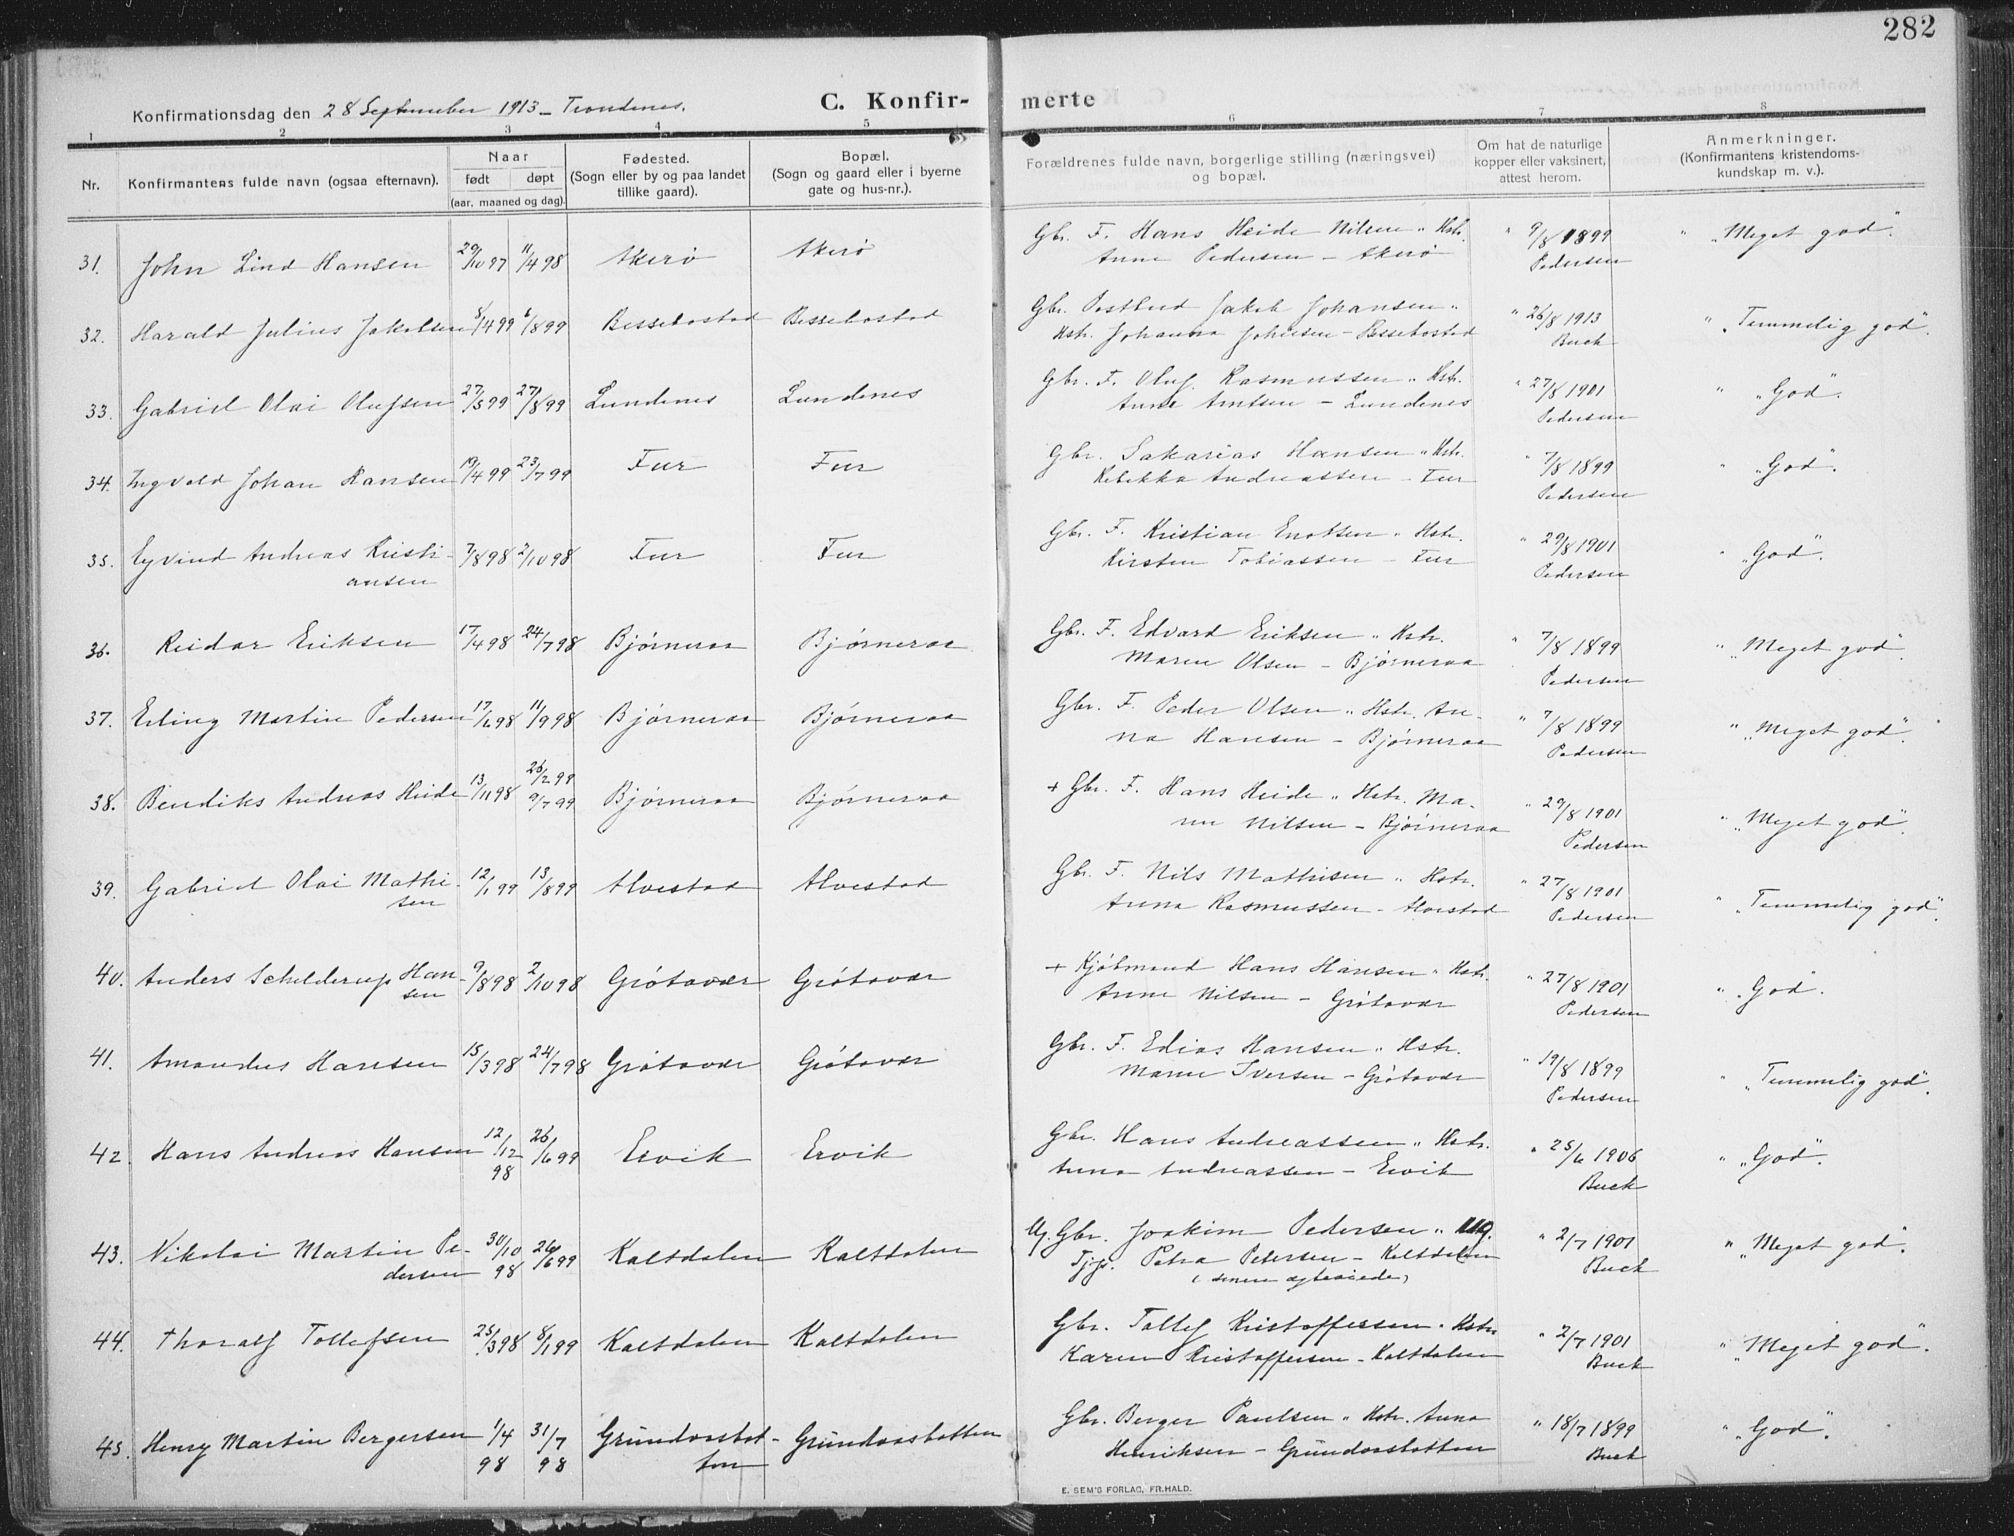 282
Konfirmationsdag den 28 September 1913 - Trondenes.
C. Konfir-
merte
1 2 3 4 5 6 7 8
Nr.
Konfirmantens fulde navn (ogsaa efternavn).
Naar
født døpt
(aar, maaned og dag).
Fødested.
(Sogn eller by og paa landet
tillike gaard).
Bopæl.
(Sogn og gaard eller i byerne
gate og hus-nr.).
Forældrenes fulde navn, borgerlige stilling (næringsvei)
og bopæl.
Om hat de naturlige
kopper eller vaksinert,
attest herom.
Anmerkninger.
(Konfirmantens kristendoms-
kundskap m. v.).
31. John Lind Hansen 29/10 97 11/4 98 Akerø Akerø
Gbr. F. Hans Heide Nilsen " Hstr.
Anne Pedersen - Akerø
" 9/8 1899
Pedersen
" "Meget god".
32. Harald Julius Jakobsen 8/4 99 6/8 99 Bessebostad Bessebostad
Gbr. Postbud Jakob Johansen "
Hstr. Johanna Johnsen - Bessebostad
" 26/8 1913
Buck
" "Temmelig god".
33. Gabriel Olai Olufsen 27/5 99 27/8 99 Lundenes Lundenes
Gbr. F. Oluf Rasmussen " Hstr.
Anne Arntsen - Lundenes
" 27/8 1901
Pedersen
" "God".
34. Ingvald Johan Hansen 19/4 99 23/7 99 Fur Fur
Gbr. Sakarias Hansen " Hstr.
Rebekka Andreassen - Fur
" 7/8 1899
Pedersen
" "God".
35. Eyvind Andreas Kristi-
ansen
7/8 98 2/10 98 Fur Fur
Gbr. F. Kristian Enoksen " Hstr.
Kirsten Tobiassen - Fur
" 29/8 1901
Pedersen
" "God".
36. Reidar Eriksen 17/4 98 24/7 98 Bjørneraa Bjørneraa
Gbr. F. Edvard Eriksen " Hstr.
Maren Olsen - Bjørneraa
" 7/8 1899
Pedersen
" "Meget god".
37. Erling Martin Pedersen 17/6 98 11/9 98 Bjørneraa Bjørneraa
Gbr. F. Peder Olsen " Hstr. An-
na Hansen - Bjørneraa
" 7/8 1899
Pedersen
" "Meget god".
38. Bendiks Andreas Heide 13/11 98 26/2 99
9/7 99
Bjørneraa Bjørneraa
+ Gbr. F. Hans Heide " Hstr. Ma-
ren Nilsen - Bjørneraa
" 29/8 1901
Pedersen
" "Meget god".
39. Gabriel Olai Mathi-
sen
12/1 99 13/8 99 Alvestad Alvestad
Gbr. F. Nils Mathisen " Hstr.
Anna Rasmussen - Alvestad
" 27/8 1901
Pedersen
" "Temmelig god".
40. Anders Schelderup Han-
sen
9/8 98 2/10 98 Grøtavær Grøtavær
+ Kjøbmand Hans Hansen " Hstr.
Anne Nilsen - Grøtavær
" 27/8 1901
Pedersen
" "God".
41. Amandus Hansen 15/3 98 24/7 98 Grøtavær Grøtavær
Gbr. F. Edias Hansen " Hstr.
Maren Iversen - Grøtavær
" 19/8 1899
Pedersen
" "Temmelig god".
42. Hans Andreas Hansen 12/12
98
26/6 99 Ervik Ervik
Gbr. Hans Andreassen " Hstr.
Anna Andreassen - Ervik
" 25/6 1906
Buck
" "God".
43. Nikolai Martin Pe-
dersen
30/10
98
26/6 99 Kaltdalen Kaltdalen
Ug. Gbr. Joakim Pedersen " Ug.
Tjp. Petra Petersen - Kaltdalen
" 2/7 1901
Buck
" "Meget god".
44. Thoralf Tollefsen 25/3 98 8/1 99 Kaltdalen Kaltdalen
Gbr. Tollef Kristoffersen " Hstr.
Karen Kristoffersen - Kaltdalen
" 2/7 1901
Buck
" "Meget god".
45. Henry Martin Bergersen 1/4
98
31/7
98
Grundarstot-
ten
Grundarstotten
Gbr. Berger Paulsen " Hstr. Anna
Henriksen - Grundarstotten
" 18/7 1899
Buck
" "God".
E. SEM'S FORLAG, FR.HALD.